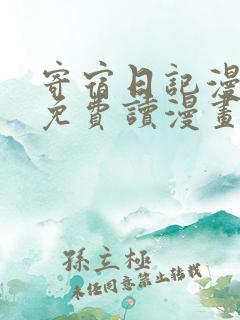 寄宿日記漫
免費讀漫畫
孫立極
未经同意禁止转载